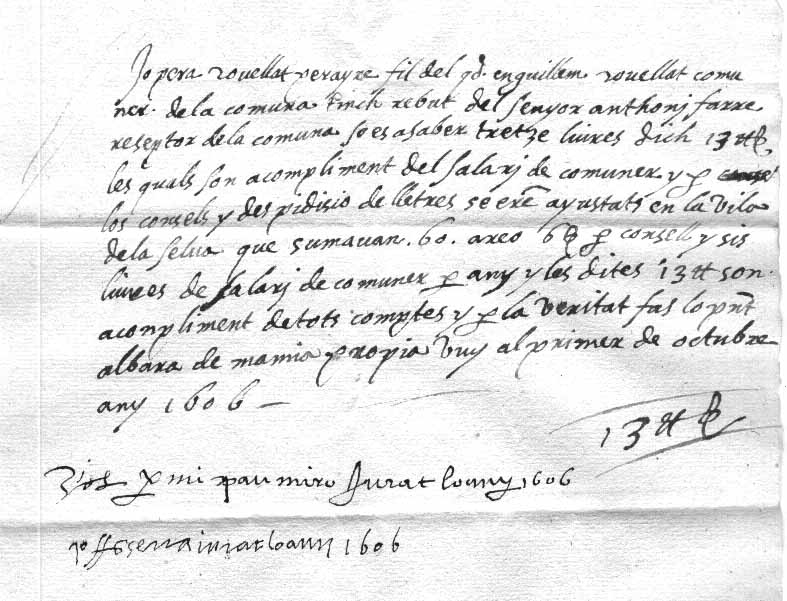 Jo pera rouellat perayre fil del qº. en guillem rouellat comu
ner. dela comuna tinch rebut del senyor anthonj farre
reseptor dela comuna so es a saber tretze liures dich 13 ₶
les quals son acompliment del salarj de comuner y p
los consells y despidisio de lletres se erē ayustats en la vila
dela selua que sumauan .60. a reo 6 p consell y sis
liures de salarj de comuner p any y les dites 13 ₶ son
aconpliment de tots comptes y p la veritat fas lo pnt
albara de ma mia propia vuy al primer de octubre
any 1606 —
13 ₶
p mi pau miro Jurat lo any 1606
serra iurat lo any 1606